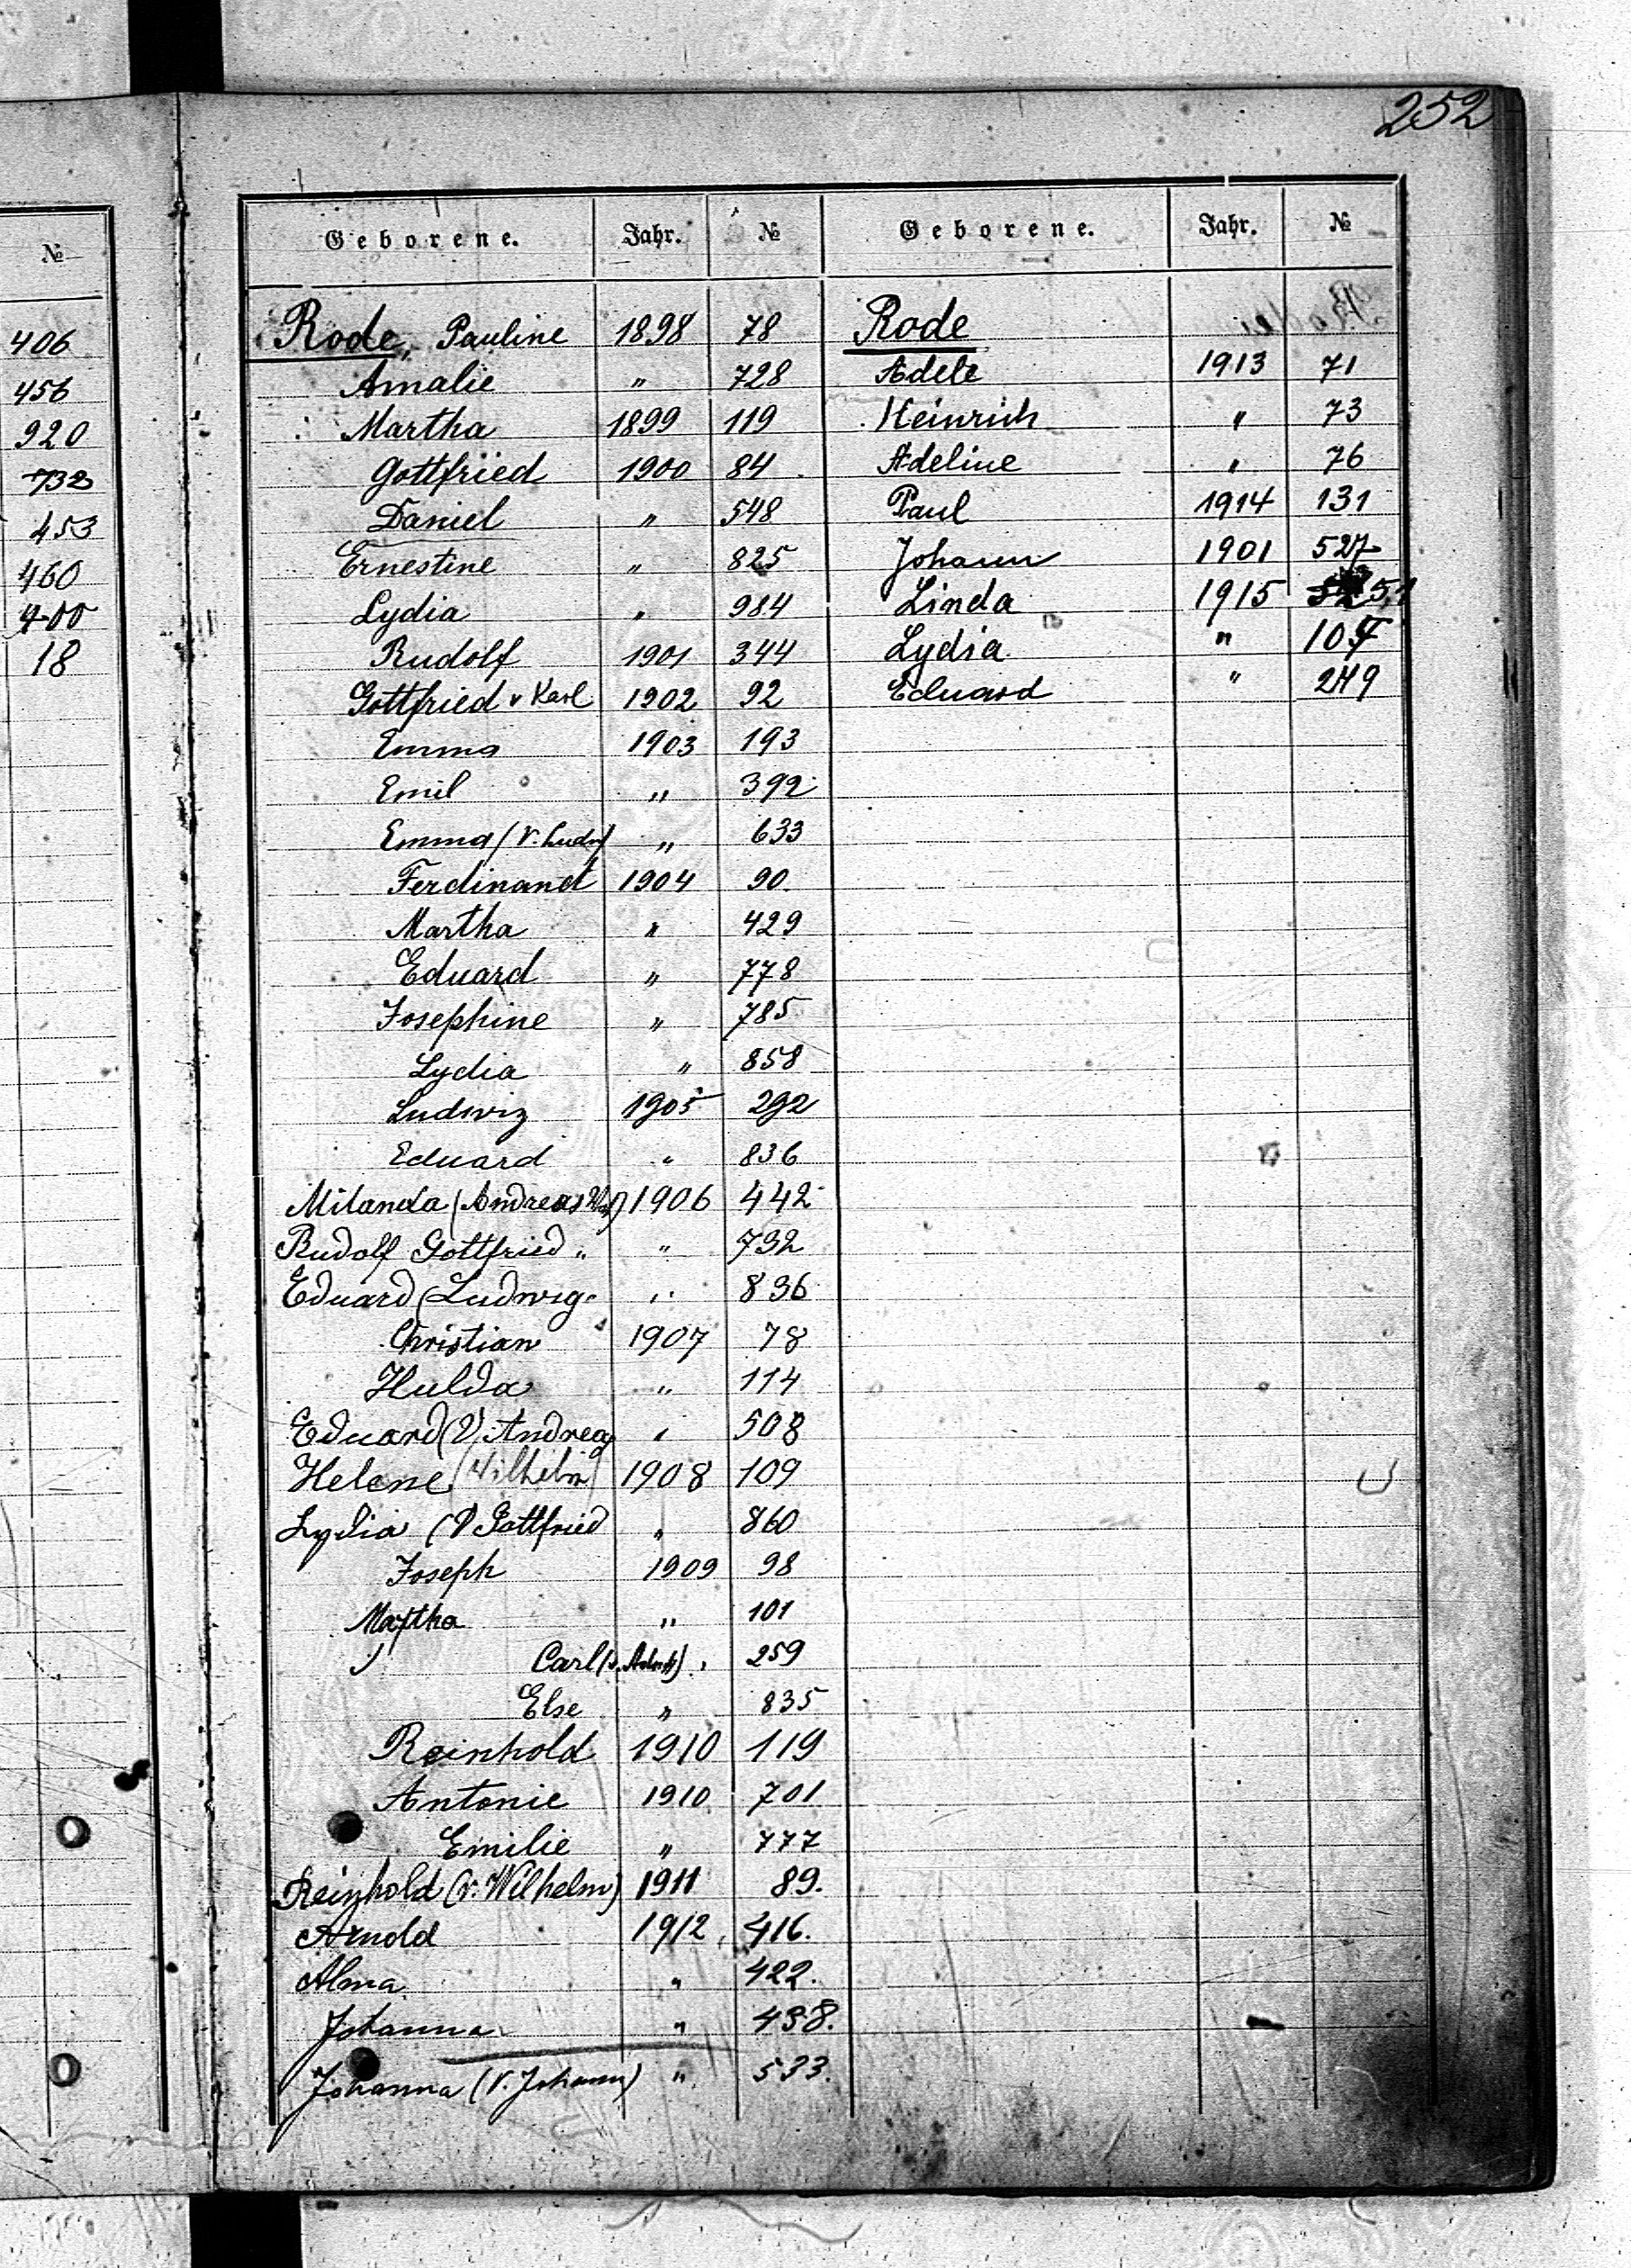 252
№
406
456
920
732
453
460
400
18
Geborene. Jahr. №
Rode, Pauline 1898 78
Amalie " 728
Martha 1899 119
Gottfried 1900 84
Daniel " 548
Ernestine " 825
Lydia " 984
Rudolf 1901 344
Gottfried v Karl 1902 92
Emma 1903 193
Emil " 392
Emma (V. Ludw) " 633
Ferdinand 1904 90.
Martha " 429
Eduard " 778
Josephine " 785
Lydia " 858
Ludwig 1905 292
Eduard " 836
Milanda (Andreas 1906 442
Rudolf Gottfried " " 732
Eduard (Ludwig " 836
Christian 1907 78
Hulda " 114
Eduard (V. Andreas " 508
Helene (Wilhelm) 1908 109
Lydia (V Gottfried " 860
Joseph 1909 98
Martha " 101
Carl (v. " 259
Else " 835
Reinhold 1910 119
Antonie 1910 701
Emilie " 777
Reinhold (V. Wilhelm) 1911 89.
Arnold 1912 416.
Alma " 422.
Johanna " 438.
Johanna (V. Johann) " 533.
Geborene. Jahr. №
Rode
Adele 1913 71
Heinrich " 73
Adeline " 76
Paul 1914 131
Johann 1901 527
Linda 1915 51
Lydia " 107
Eduard " 249